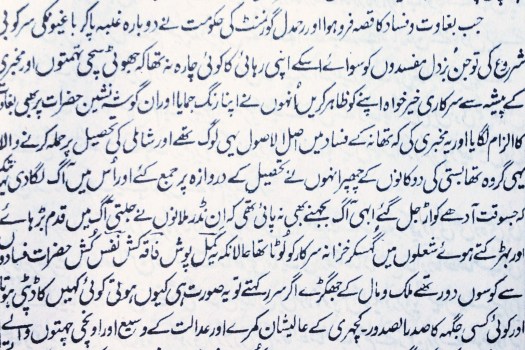 جب بغاوت و فساد کا قصہ فرو ہوا اور رحمدل گورنمنٹ کی حکومت نے دوبارہ غلبہ پا کر باغیونکی سرکوبی
شروع کی تو جن بزدل مفسدوں کو سوائے اسکے اپنی رہائی کا کوئی چارہ نہ تھا کہ جھوٹی سچی تہمتوں اور مخبری
کے پیشہ سے سرکاری خیر خواہ اپنے کو ظاہر کریں اُنہوں نے اپنا رنگ جمایا اور ان گوشہ نشین حضرات پر بھی بغاوت
کا الزام لگایا اور یہ مخبری کی کہ تھانہ کے فساد میں اصل الاصول یہی لوگ تھے اور شاملی کی تحصیل پر حملہ کرنے والا
یہی گروہ تھا بستی کی دوکانوں کے چھپر انہوں نے تحصیل کے دروازہ پر جمع کئے اور اُس میں آگ لگا دی
جسوقت آدھے کواڑ جل گئے ابھی آگ بجھنے بھی نہ پائی تھی کہ ان نڈر ملانوں نے جلتی آگ میں قدم بڑھائے
اور بھڑکتے ہوئے شعلوں میں گھسکر خزانہ سرکار کو لوٹا تھا حالانکہ کمبل پوش فاقہ کش نفس کش حضرات فسادوں
سے کوسوں دور تھے ملک و مال کے جھگڑے اگر سر رکھتے تو یہ صورت ہی کیوں ہوتی کوئی کہیں کا ڈپٹی ہوتا
اور کوئی کسی جگہ کا صدر یا صدر الصدور کچہری کے عالیشان کمرے اور عدالت کے وسیع اور اونچی چھتوں والے